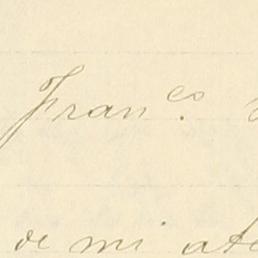 Fran.co
de mi ate